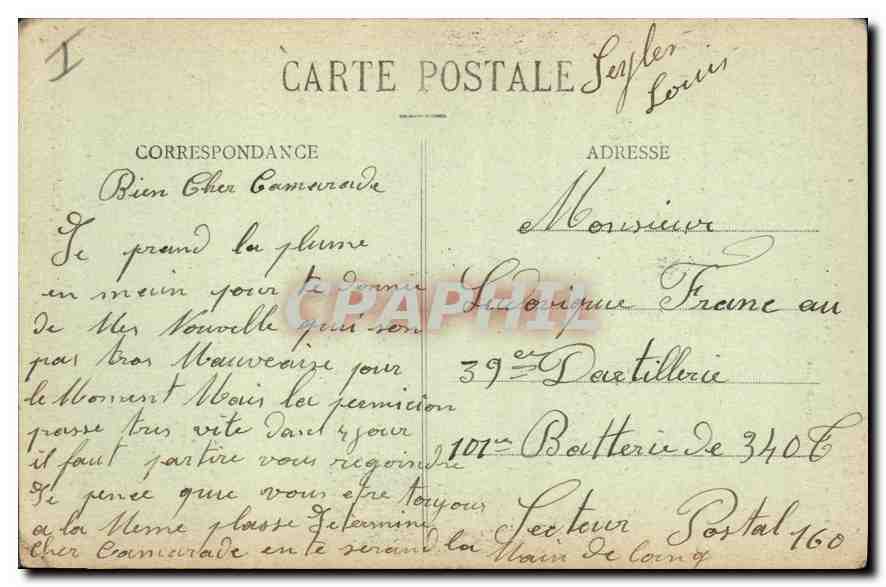 I
CARTE POSTALE
Seyler
Louis
CORRESPONDANCE
Bien Cher Camarade
Je prand la plume
en main pour te donnie
de Mes Nouvelle qui son
pas tros Mauveaise pour
le Moment Mais la permicion
passe tres vite dans 4 jour
il faut partire vous regoindre
Je pence que vous etre toujous
a la Meme plasse Je termine
Cher Camarade en te serand la Main de loing
ADRESSE
Monsieur
Ludovique Franc au
39em Dartillerie
101em Batterie de 340 T
Secteur Postal 160
CPAPHIL